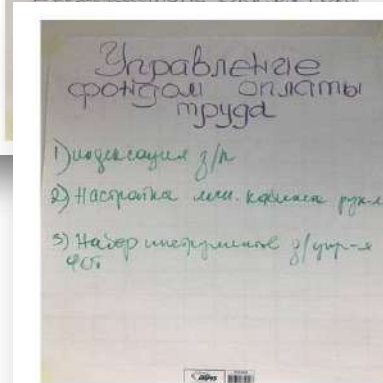 Управление
фондом оплаты
труда
1) индексация з/п
2) Настройка лич. кабинета рук-л
3) Набор инструментов д/упр-я
ФОТ